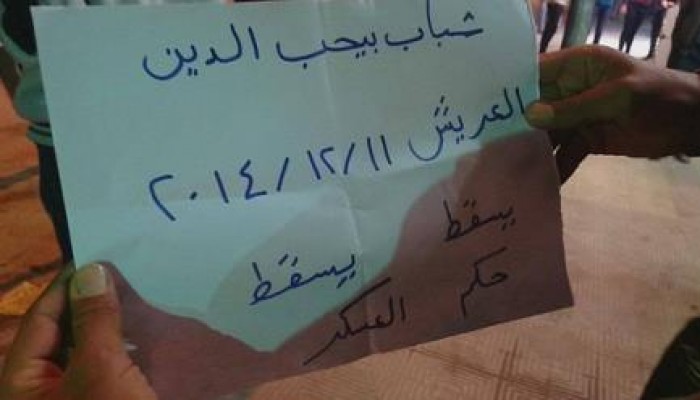 شباب بيحب الدين
العريش ٢٠١٤/١٢/١١
يسقط يسقط
حكم العسكر